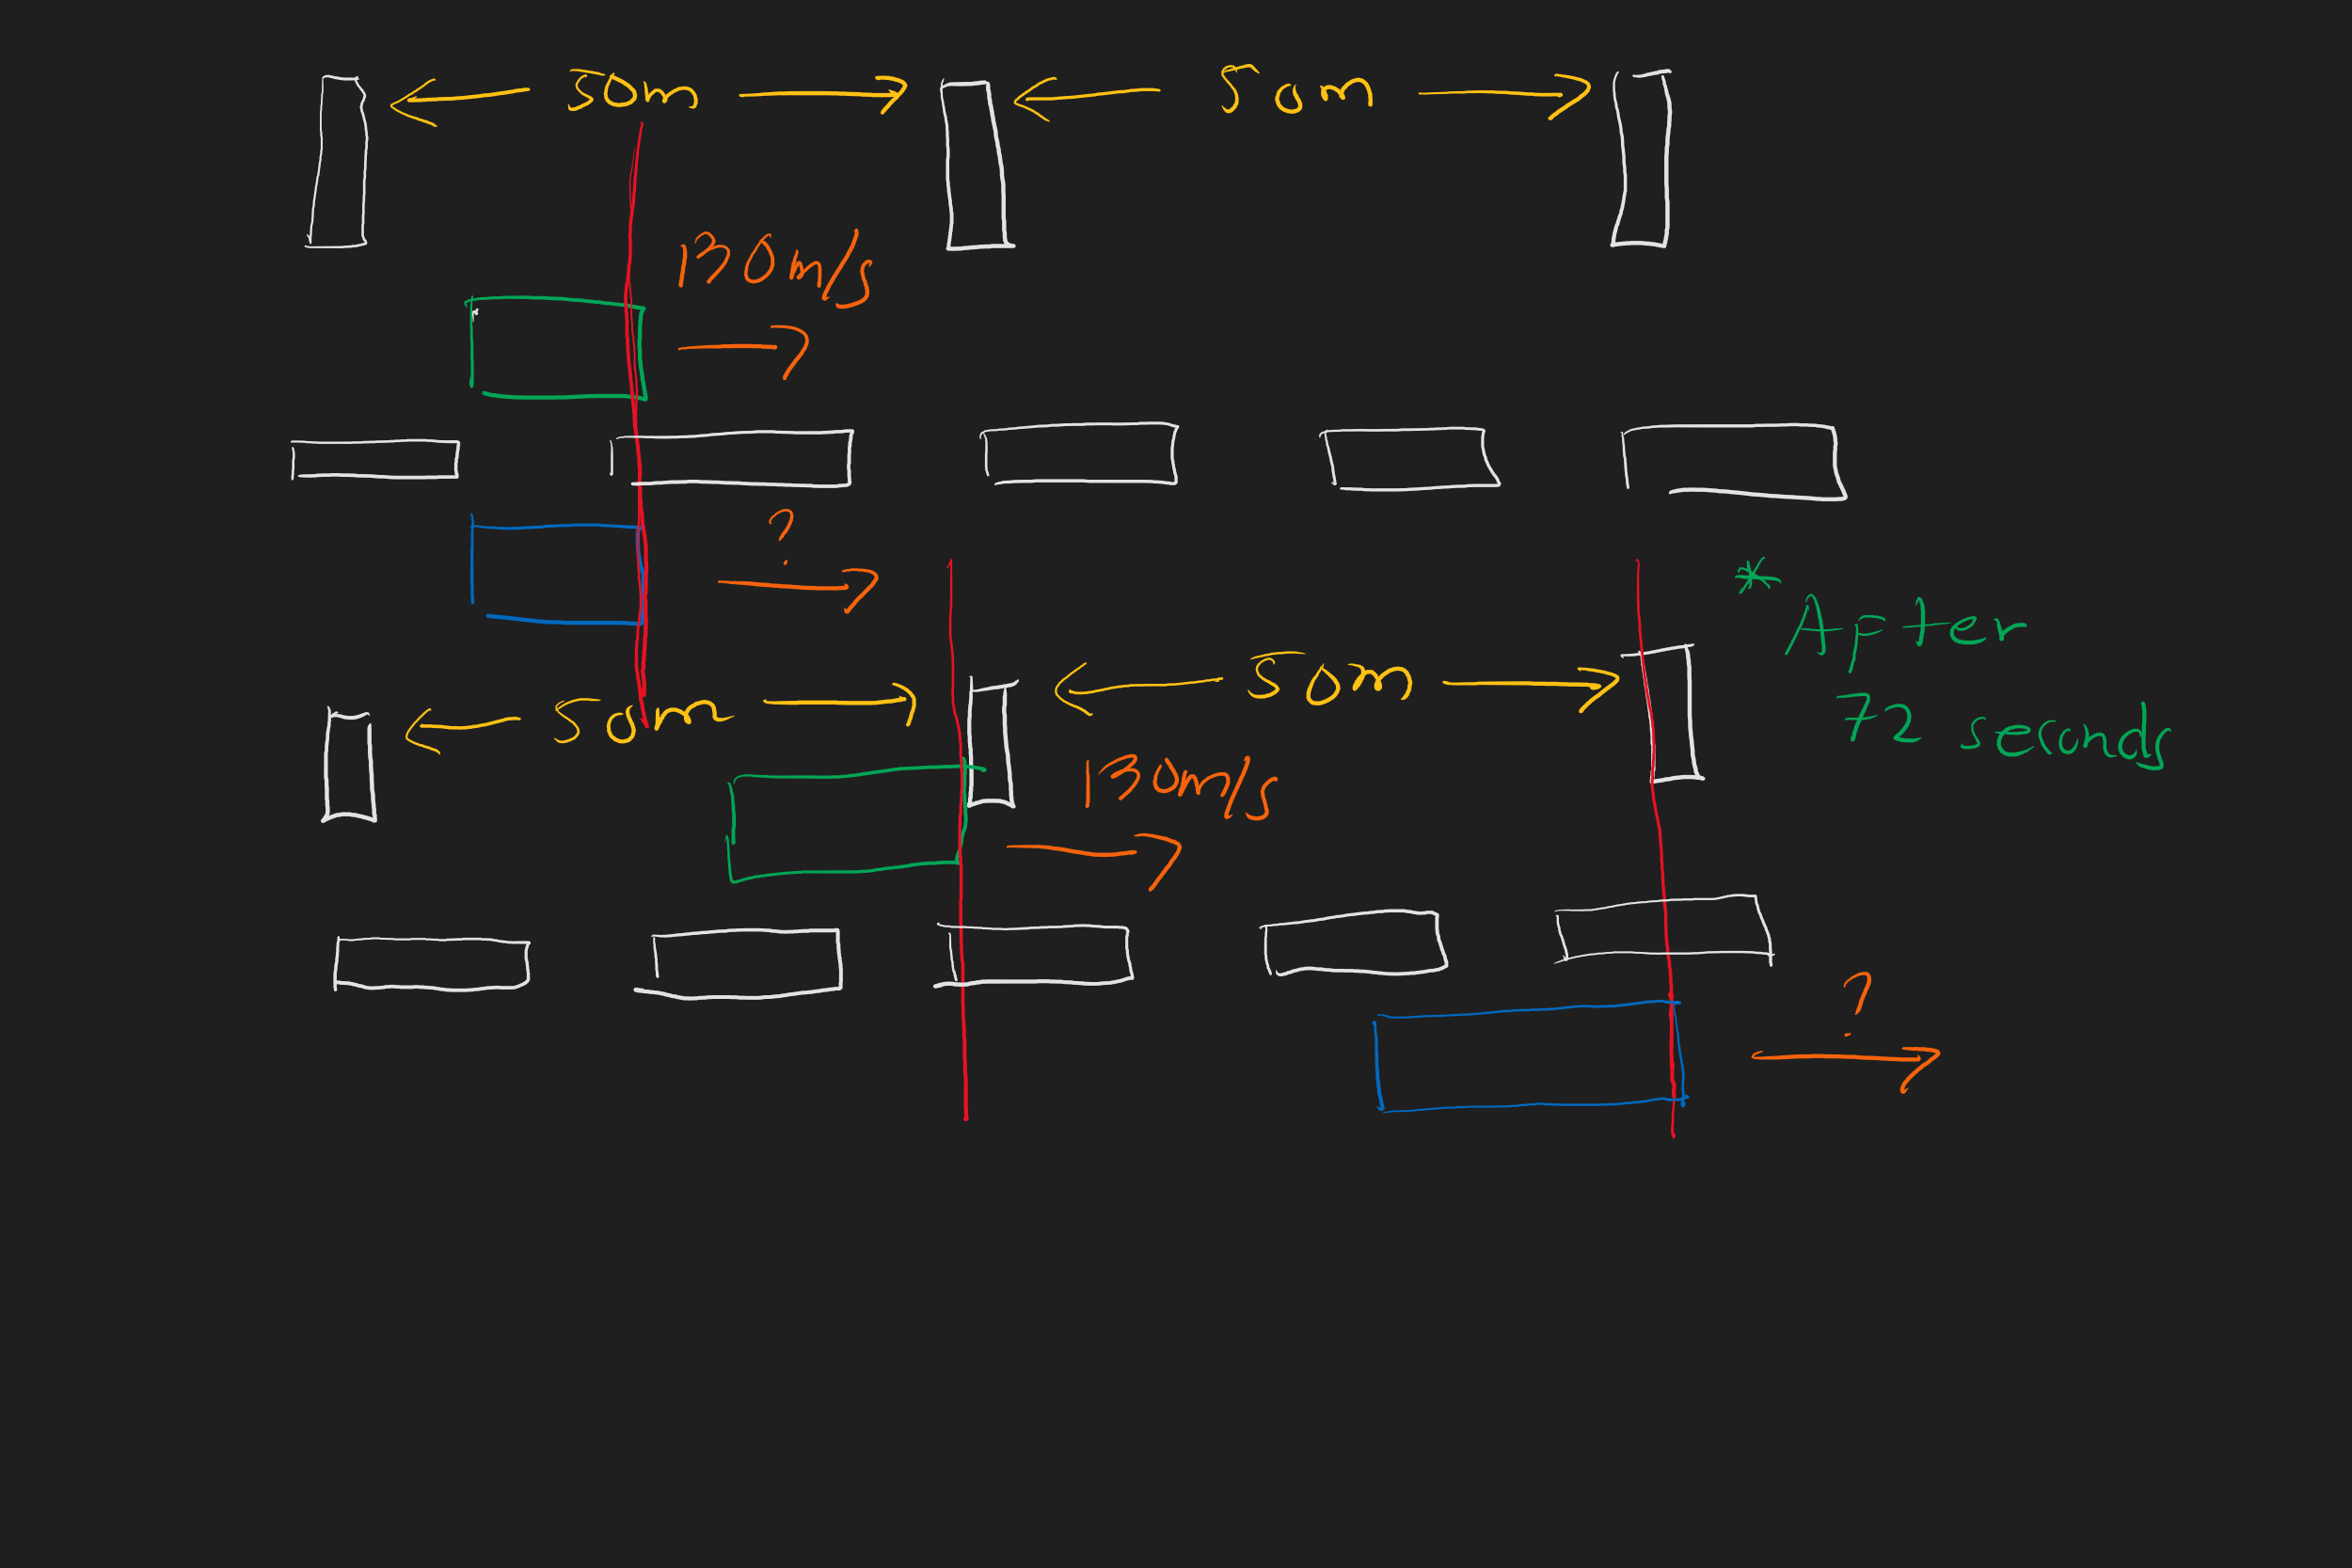 50m 50m
130m/s
?
* After
72 seconds
50m 50m
130m/s
?